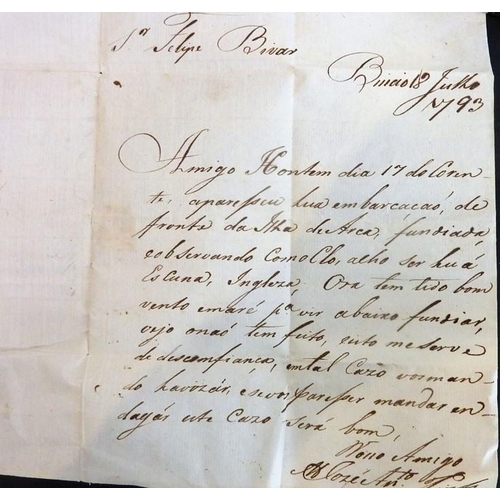 Sr Felipe Bivar
18 Julho
1793
Amigo Hontem dia 17 do Coren-
te, aparesseu hua embarcacaó, de
fronte da Ilha de Arca, fundiada,
e observando Com o Clo, acho ser huá
Escuna, Ingleza, Ora tem tido bom
vento emaré pa vir abaixo fundiar,
vejo onaó tem feito, eisto me serve
de desconfiança, em tal Cazo vos man-
do havizár, esevos paresser mandar en-
dagár este Cazo será bom,
Vosso Amigo
Jozé Anto